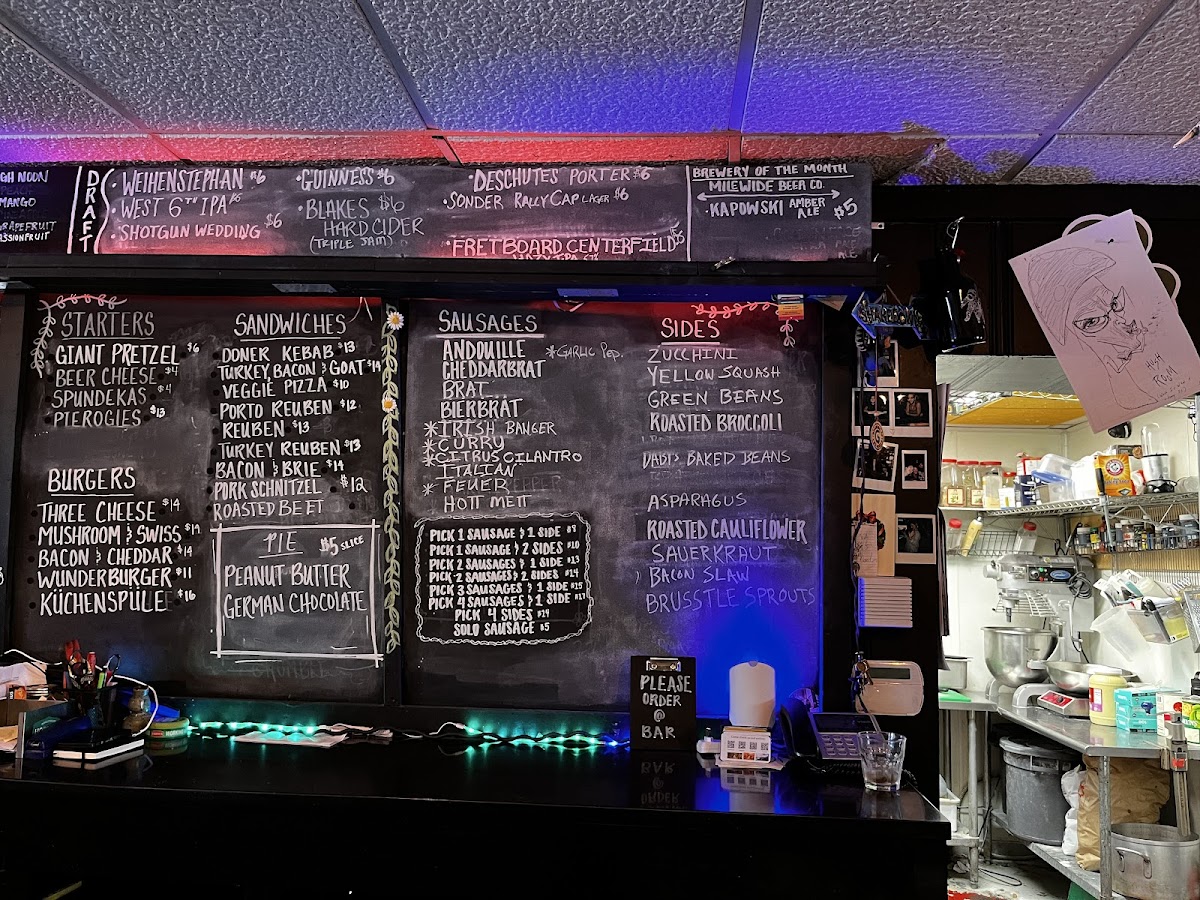 GH NOON
PEACH
MANGO
GRAPEFRUIT
PASSIONFRUIT
DRAFT
• WEIHENSTEPHAN $6
• WEST 6TH IPA
• SHOTGUN WEDDING $6
• GUINNESS $6
• BLAKES $6
HARD CIDER
(TRIPLE JAM)
• DESCHUTES PORTER $6
• SONDER RALLY CAP LAGER $6
• FRETBOARD CENTERFIELD $5
BREWERY OF THE MONTH
MILEWIDE BEER CO.
• KAPOWSKI AMBER ALE $5
STARTERS
GIANT PRETZEL $6
BEER CHEESE $4
SPUNDEKAS $4
PIEROGIES $13
BURGERS
THREE CHEESE $14
MUSHROOM & SWISS $14
BACON & CHEDDAR $14
WUNDERBURGER $11
KÜCHENSPÜLE $16
SANDWICHES
DONER KEBAB $13
TURKEY BACON & GOAT $14
VEGGIE PIZZA $10
PORTO REUBEN $12
REUBEN $13
TURKEY REUBEN $13
BACON & BRIE $14
PORK SCHNITZEL $12
ROASTED BEET
PIE $5 SLICE
PEANUT BUTTER
GERMAN CHOCOLATE
SAUSAGES
ANDOUILLE *GARLIC PEP.
CHEDDARBRAT
BRAT
BIERBRAT
*IRISH BANGER
*CURRY
*CITRUS CILANTRO
ITALIAN
* FEUER
HOTT METT
PICK 1 SAUSAGE & 1 SIDE $9
PICK 1 SAUSAGE & 2 SIDES $10
PICK 2 SAUSAGES & 1 SIDE $13
PICK 2 SAUSAGES & 2 SIDES $14
PICK 3 SAUSAGES & 1 SIDE $15
PICK 4 SAUSAGES & 1 SIDE $17
PICK 4 SIDES $14
SOLO SAUSAGE $5
SIDES
ZUCCHINI
YELLOW SQUASH
GREEN BEANS
ROASTED BROCCOLI
DAD'S BAKED BEANS
ASPARAGUS
ROASTED CAULIFLOWER
SAUERKRAUT
BACON SLAW
BRUSSTLE SPROUTS
PLEASE
ORDER
@
BAR